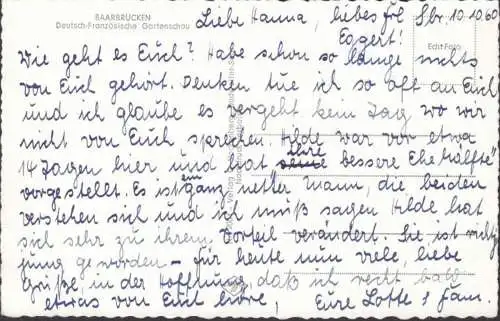 SAARBRÜCKEN
Deutsch-Französische Gartenschau
Echt Foto
Sbr. 10.10.60
Liebe Hanna, liebes
Eggert!
Wie geht es Euch? Habe schon so lange nichts
von Euch gehört. Denken tue ich so oft an Euch
und ich glaube es vergeht kein Tag wo wir
nicht von Euch sprechen. Hilde war vor etwa
14 Tagen hier und hat ihre "bessere Ehehälfte"
vorgestellt. Es ist ein ganz netter Mann, die beiden
verstehen sich und ich muß sagen Hilde hat
sich sehr zu ihrem Vorteil verändert. Sie ist richtig
jung geworden - für heute nun viele, liebe
Grüße, in der Hoffnung, daß ich recht bald
etwas von Euch höre, Eure Lotte & Fam.